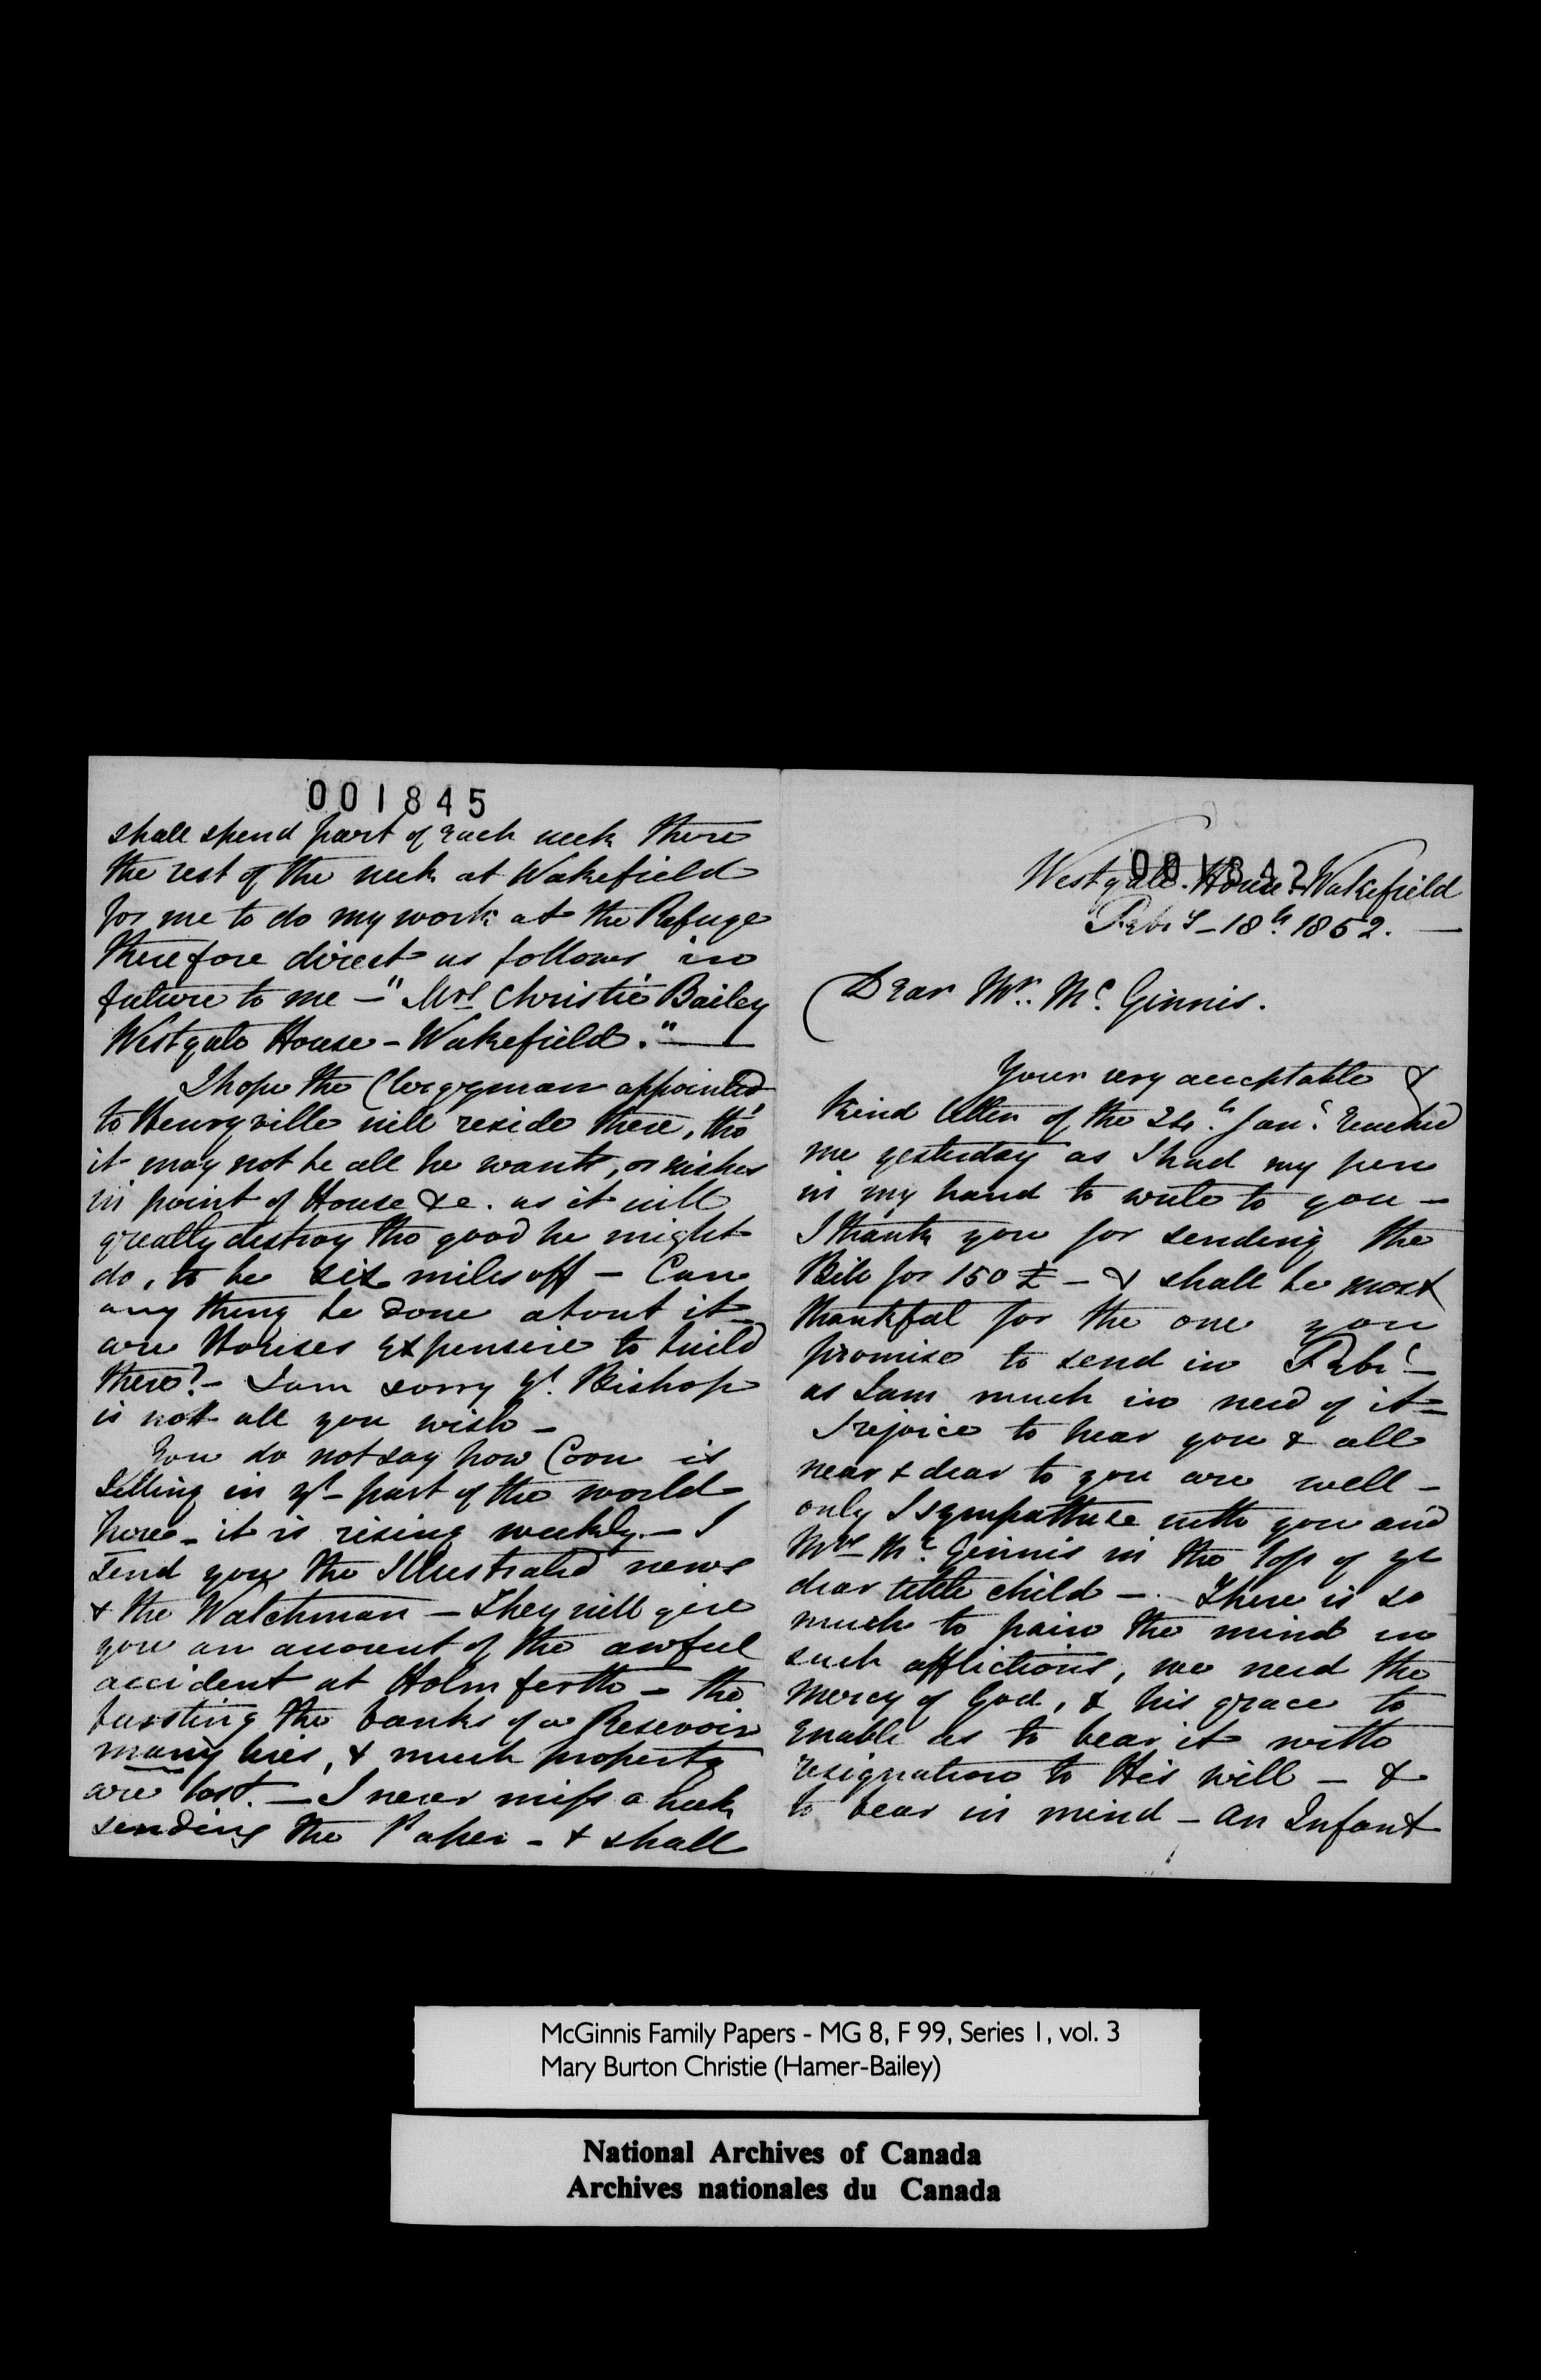 001845
shall spend part of each week there
the rest of the week at Wakefield
for me to do my work at the Refuge
therefore direct as follows in
future to me - "Mrs Christie Bailey
Westgate House - Wakefield."
I hope the Clergyman appointed
to Henryville will reside there, tho'
it may not be all he wants, or wishes
in point of House &c. as it will
greatly destroy the good he might
do, to be six miles off - Can
any thing be done about it -
are Houses expensive to build
there? - I am sorry yr. Bishop
is not all you wish -
You do not say how Corn is
selling in yr - part of the world
here - it is rising weekly. - I
send you the Illustrated news
& the Watchman - They will give
you an account of the awful
accident at Holmferth - the
bursting the banks of a Resevoir
many lives, & much property
are lost. - I never miss a week
sending the Paper - & shall
001842
Westgate House - Wakefield
Feby - 18th. 1852. -
Dear Mr. Mc. Ginnis.
Your very acceptable &
kind letter of the 24th. Jany. reached
me yesterday as I had my pen
in my hand to write to you -
I thank you for sending the
Bill for 150 £ - & shall be most
thankful for the one you
promise to send in Febr. -
as I am much in need of it -
I rejoice to hear you & all
near & dear to you are well -
only I sympathise with you and
Mrs - Mc. Ginnis in the loss of yr
dear little child - There is so
much to pain the mind in
such afflictions, we need the
mercy of God, & his grace to
enable us to bear it with
resignation to His will - &
to bear in mind - an Infant
McGinnis Family Papers - MG 8, F 99, Series 1, vol. 3
Mary Burton Christie (Hamer-Bailey)
National Archives of Canada
Archives nationales du Canada